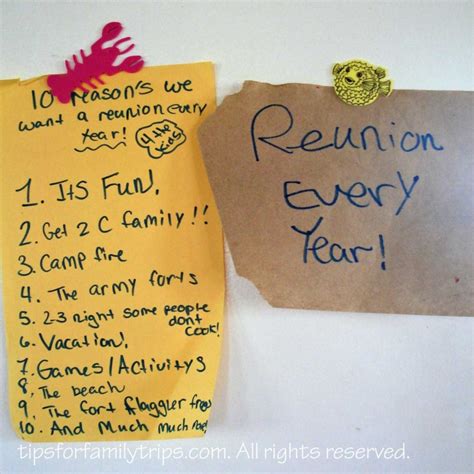 10 reason's we
want a reunion every
year!
4 the
kids!
1. Its Fun!
2. Get 2 C family!!
3. Camp fire
4. The army forts
5. 2-3 night some people
dont
cook!
6. Vacation!
7. Games/Activitys
8. The beach
9. The fort flaggler
10. And Much Much
Reunion
Every
Year!
tipsforfamilytrips.com. All rights reserved.